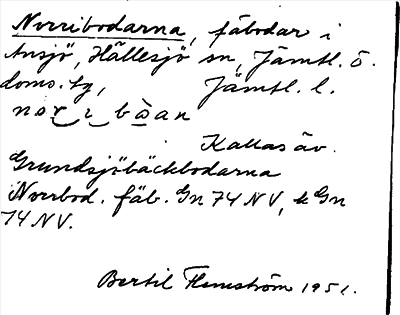 Norribodarna, fäbodar i
Ansjö, Hällesjö sn, Jämtl. ö.
doms. tg, Jämtl. l.
nor i bòan
Kallas äv.
Grundsjöbäckbodarna
Norrbod. fäb. Gn 74 NV, k Gn
74 NV.
Bertil Flemström 1951.